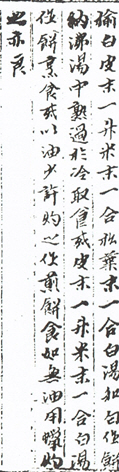 楡白皮末一升米末一合松葉末一合白湯和匀作餅
納沸湯中熟過於冷取食或皮末一升米末一合白湯
作餅煮食或以油少許灼之作煎餅食如無油用蠟灼
之亦良